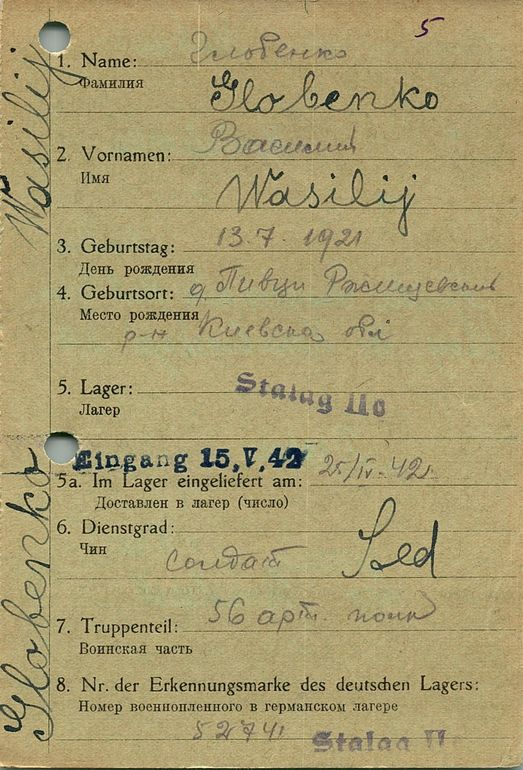 5
1. Name: Глобенко
Фамилия
Globenko
2. Vornamen: Василий
Имя
Wasilij
3. Geburtstag: 13.7.1921
День рождения
4. Geburtsort: д. Пивци Ржищевский
Место рождения
р-н Киевская обл
5. Lager: Stalag IIc
Лагер
Eingang 15.V.42
25/IV-42
5a. Im Lager eingeliefert am:
Доставлен в лагер (число)
6. Dienstgrad:
Чин
солдат Sold
7. Truppenteil: 56 арт. полк
Воинская часть
8. Nr. der Erkennungsmarke des deutschen Lagers:
Номер военнопленного в германском лагере
52741 Stalag II
Globenko Wasilij